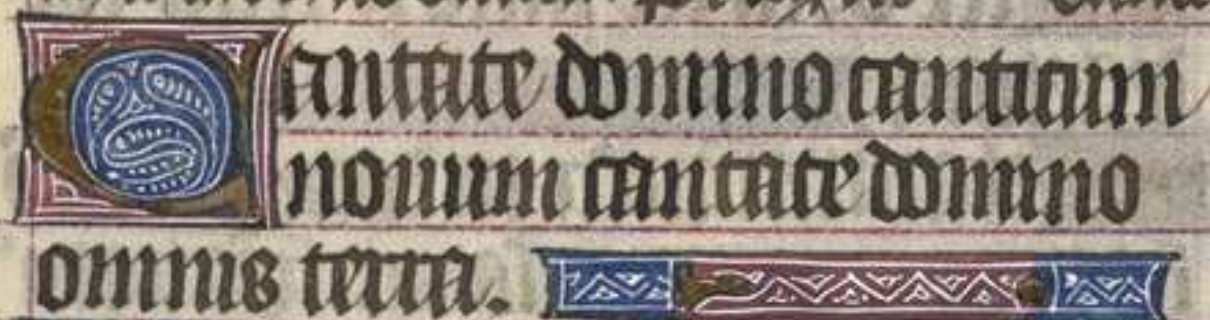 Cantate domino canticum
nouum cantate domino
omnis terra.